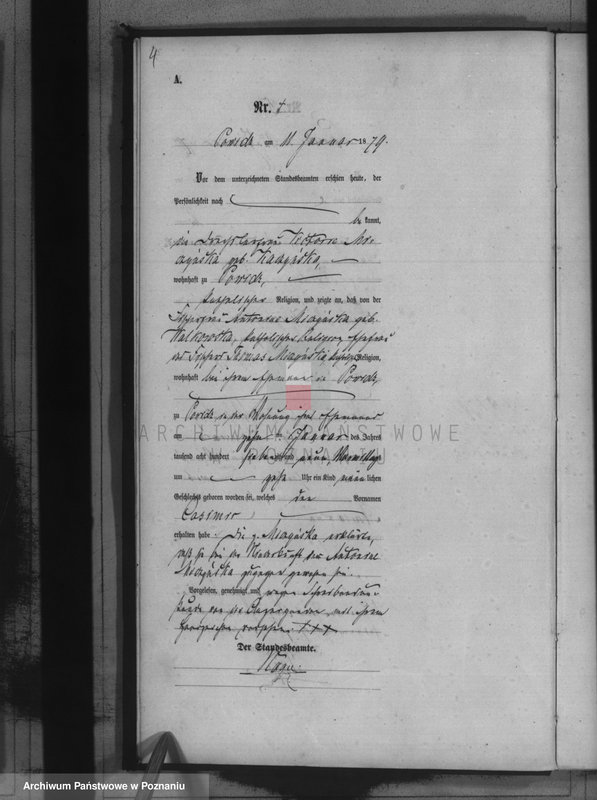 4
A.
Nr. 4
Powidz am 11. Januar 1879.
Vor dem unterzeichneten Standesbeamten erschien heute, der
Persönlichkeit nach
be kannt,
die Victorie
geb.
wohnhaft zu Powidz,
katholischer Religion, und zeigte an, daß von der
Antonie geb.
Walkowska, katholischer Religion Ehefrau
des Töpfers Thomas Religion,
wohnhaft bei ihrem Ehemanne in Powidz,
zu Powidz in der Wohnung ihres Ehemannes
am zehn ten Januar des Jahres
tausend acht hundert siebenzig und neun, Vormittags
um Uhr ein Kind männ lichen
Geschlechts geboren worden sei, welches den Vornamen
Casimir
erhalten habe. Die erklärte,
daß sie bei der Niederkunft der Antonie
zugegen gewesen sei.
Vorgelesen, genehmigt und wegen
von der mit ihrem
Handzeichen versehen +++
Der Standesbeamte.
ARCHIWUM PAŃSTWOWE
W POZNANIU
Archiwum Państwowe w Poznaniu